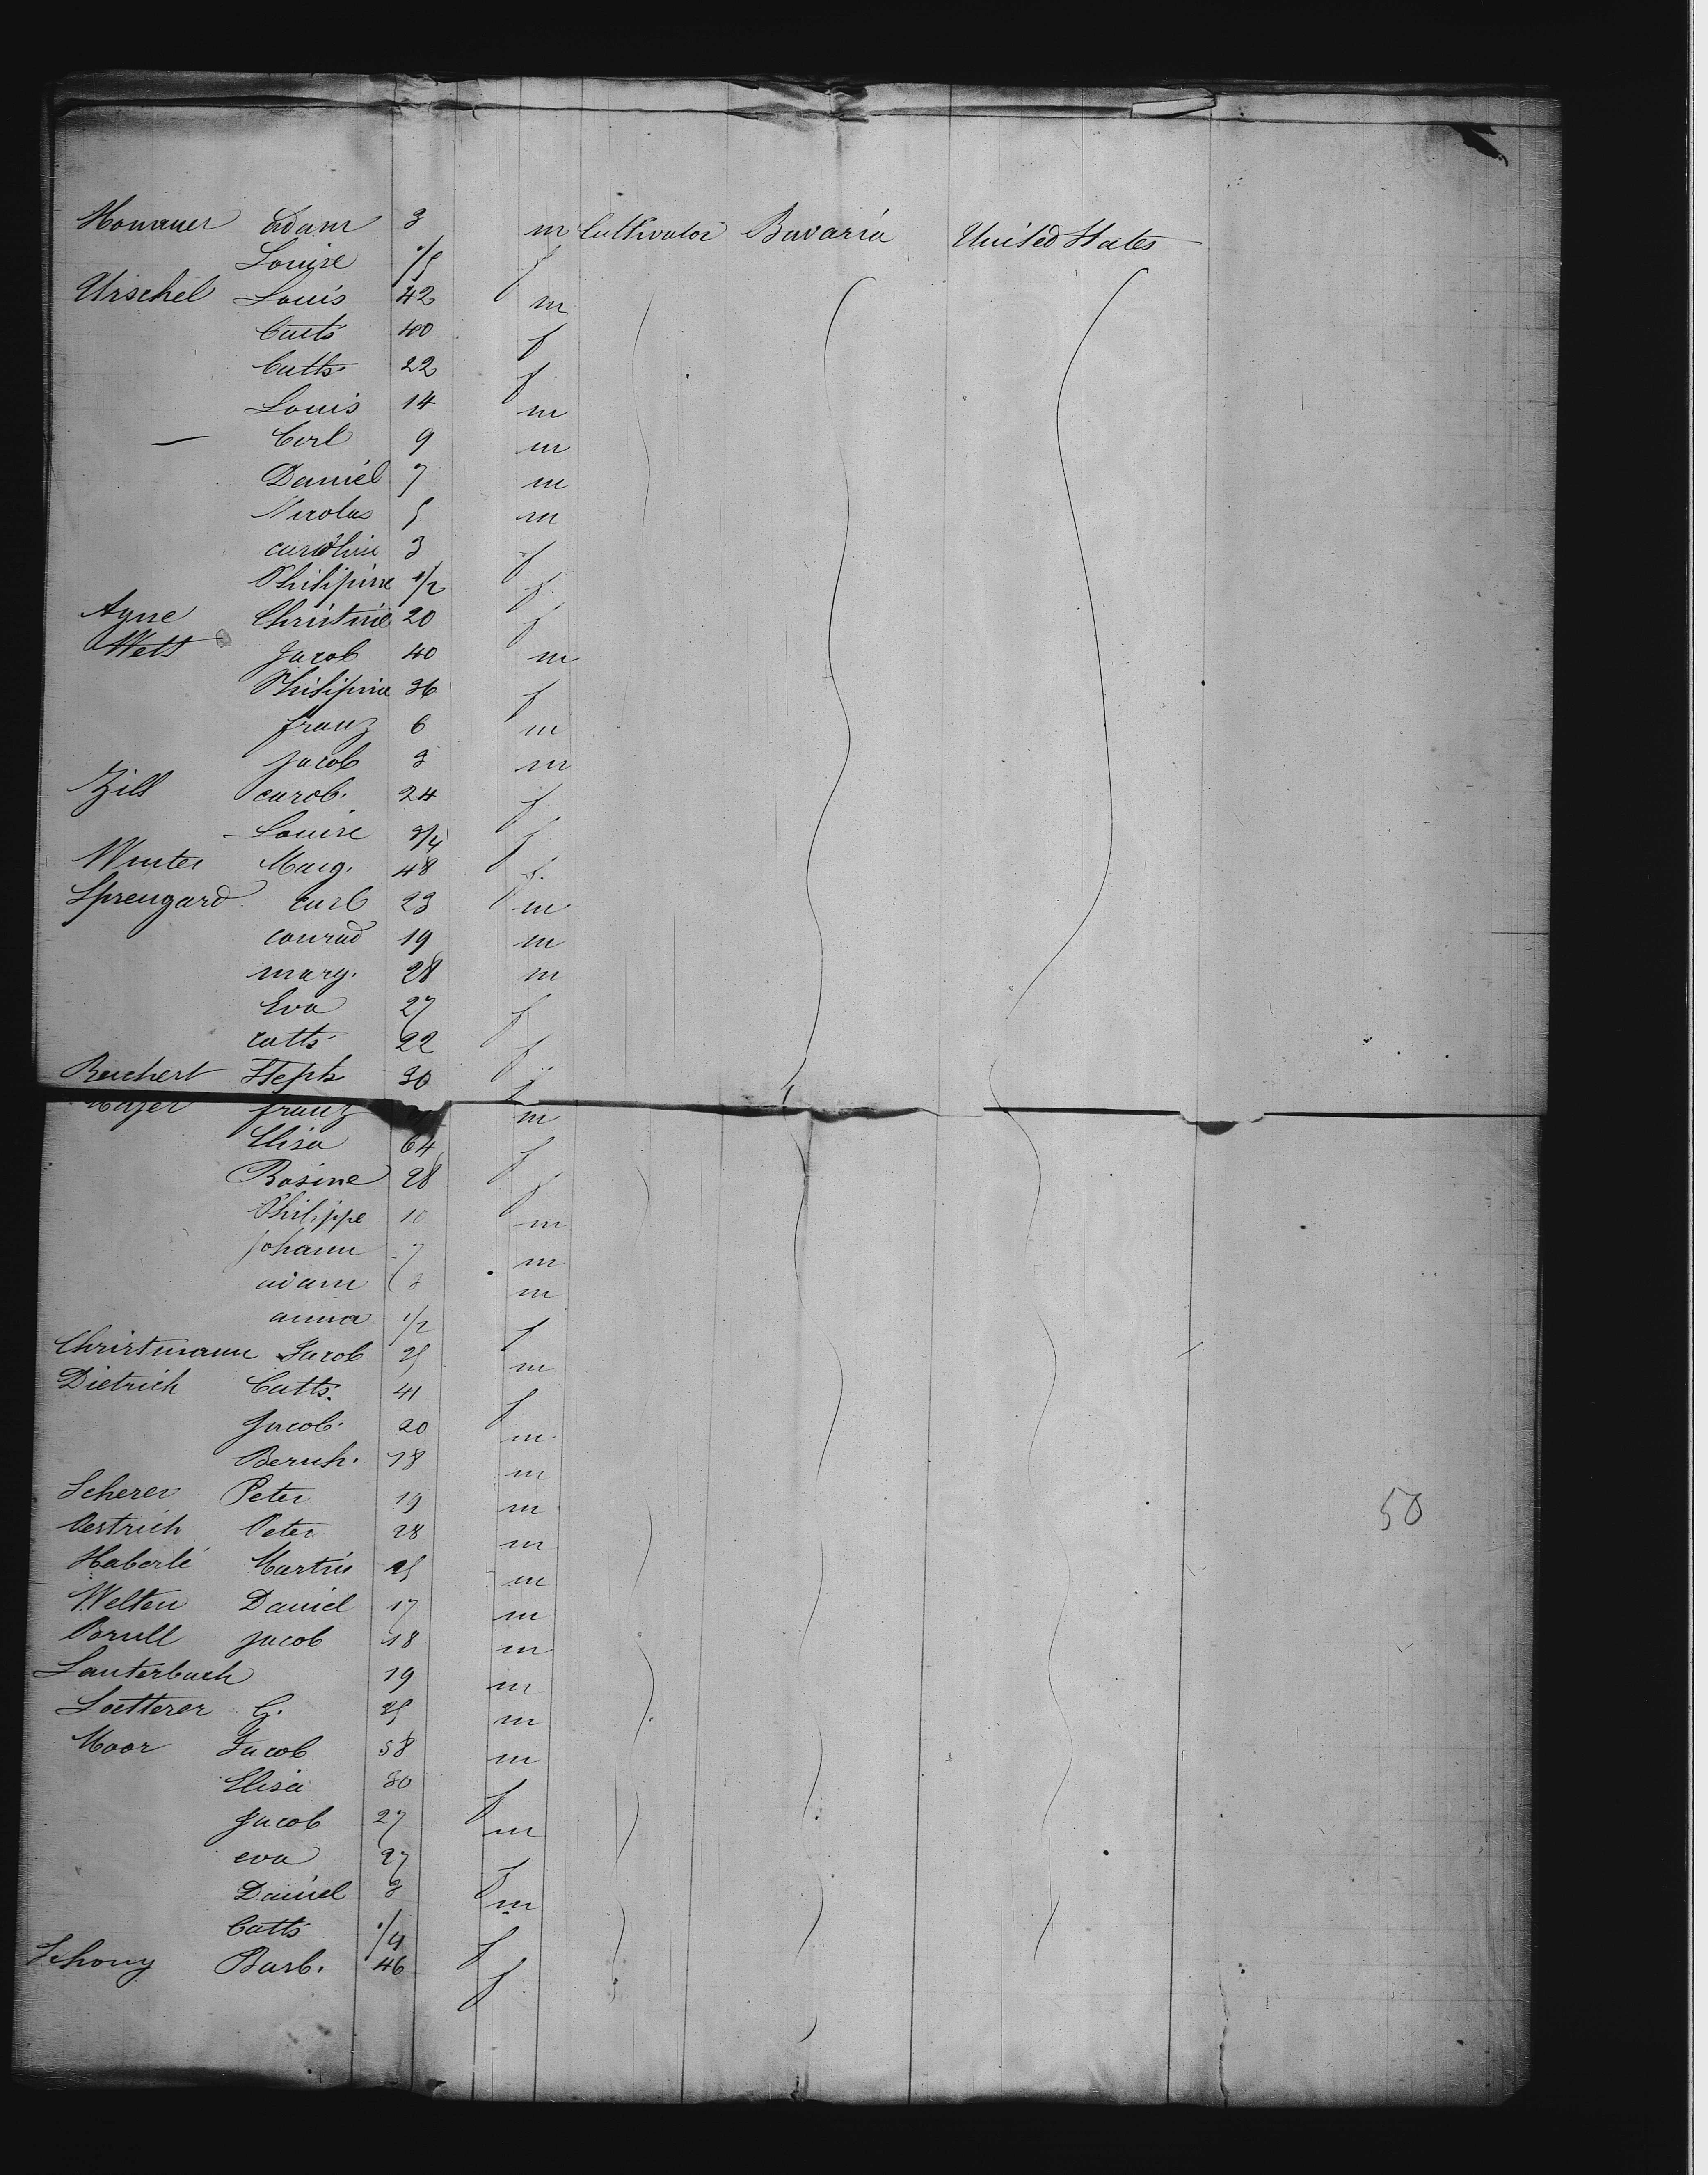 Monauer Adam 3 m Cultivator Bavaria United States
Louise 1/5 f
Urschel Louis 42 m
Cats 40 f
Caths 22 f
Louis 14 m
— Carl 9 m
Daniel 7 m
Nicolas 5 m
caroline 3 f
Philipine 1/2 f
Ayne Christine 20 f
Wett Jacob 40 m
Philipine 36 f
franz 6 m
Jacob 3 m
Zill carol. 24 f
Louise 3/4 f
Winter Marg. 48 f.
Sprengard carl 23 m
conrad 19 m
marg. 28 m
Eva 27 f
catts 22 f
Reichert Steph 30
franz m
Elisa 64 f
Rosine 28 f
Philippe 10 m
Johann 7 m
adam 3 m
anna 1/2 f
Christmann Jacob 25 m
Dietrich Catts. 41 f
Jacob. 20 m
Bernh. 18 m
Scherer Peter 19 m
Oestrich Peter 28 m
Haberlé Martin 25 m
Welton Daniel 17 m
Brull Jacob 18 m
Lauterbach 19 m
Loetterer G. 25 m
Moor Jacob 58 m
Elisa 30 f
Jacob 27 m
eva 27 f
Daniel 3 m
Catts 1/4 f
Schony Barb. 46 f.
50